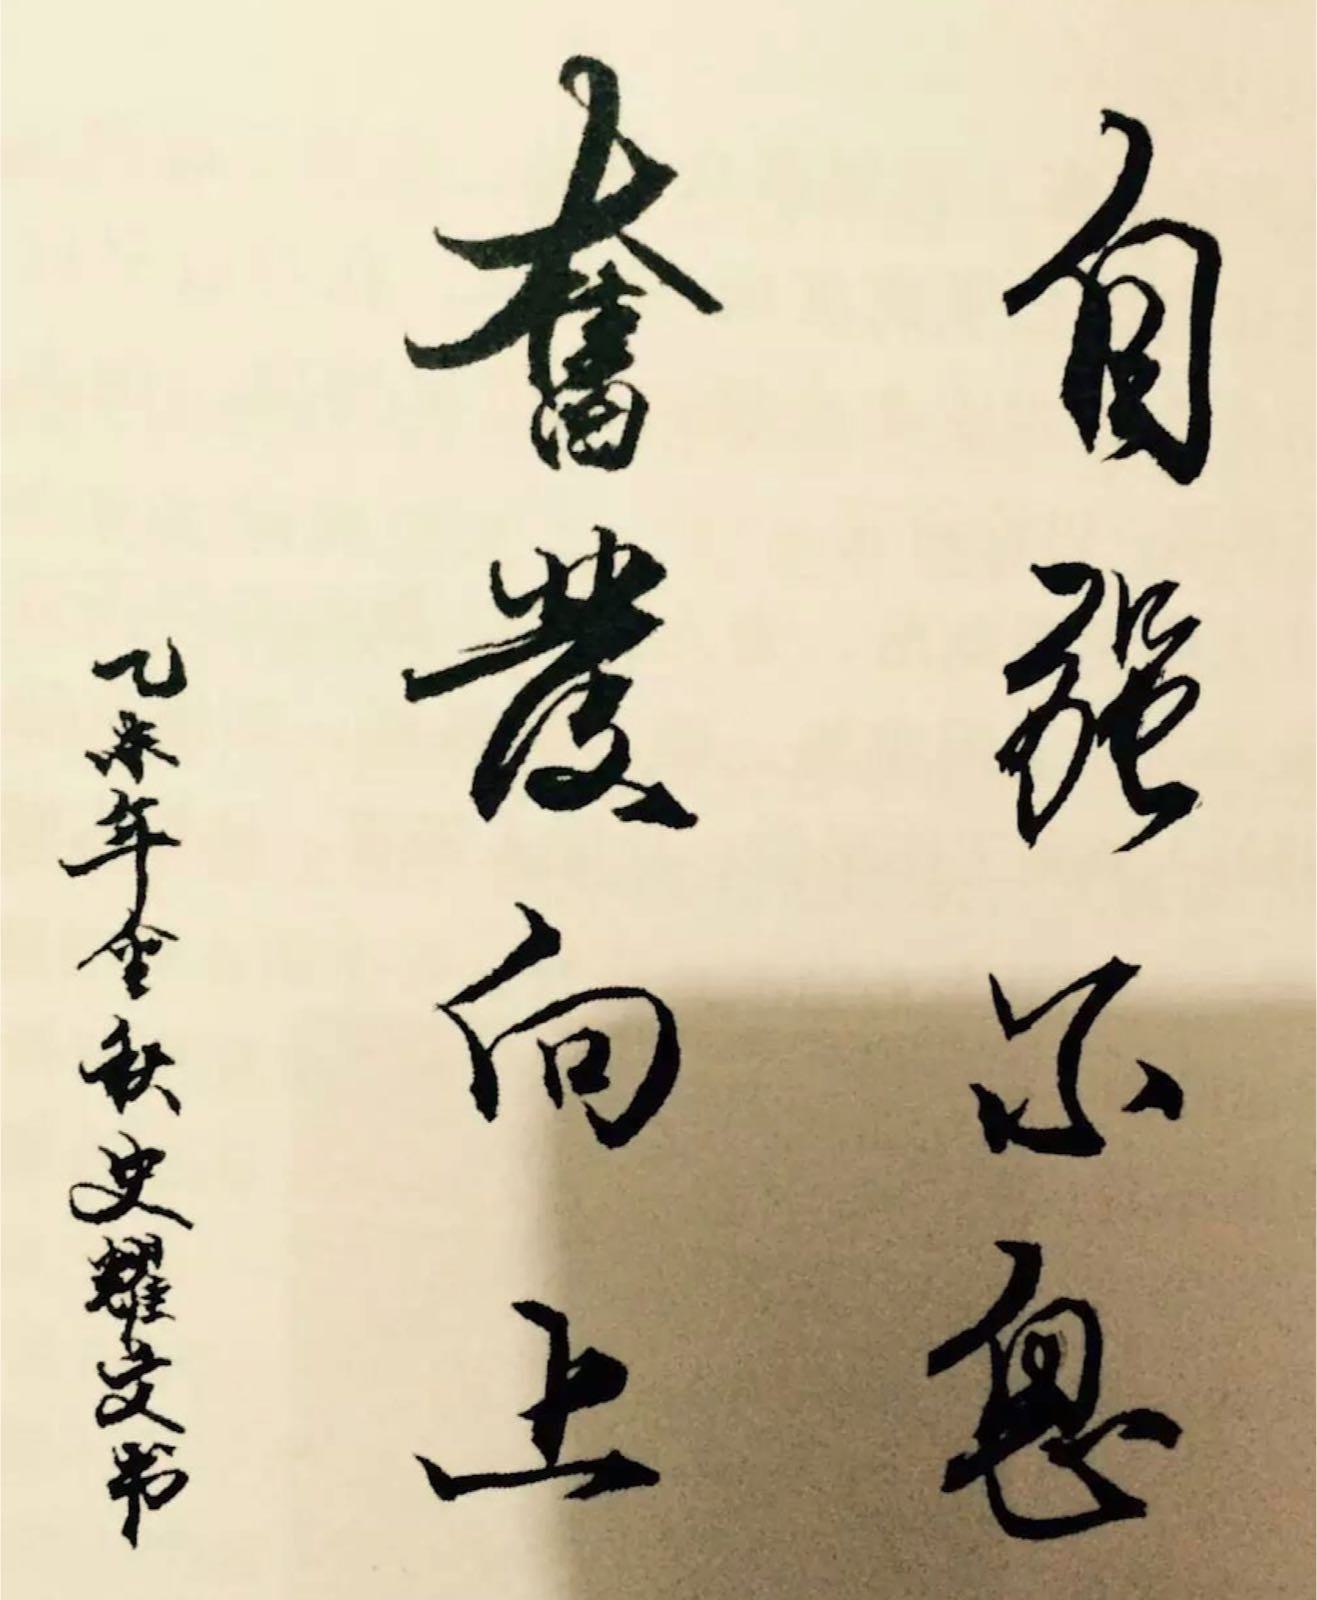 自强不息
奮發向上
乙未年金秋史耀文书